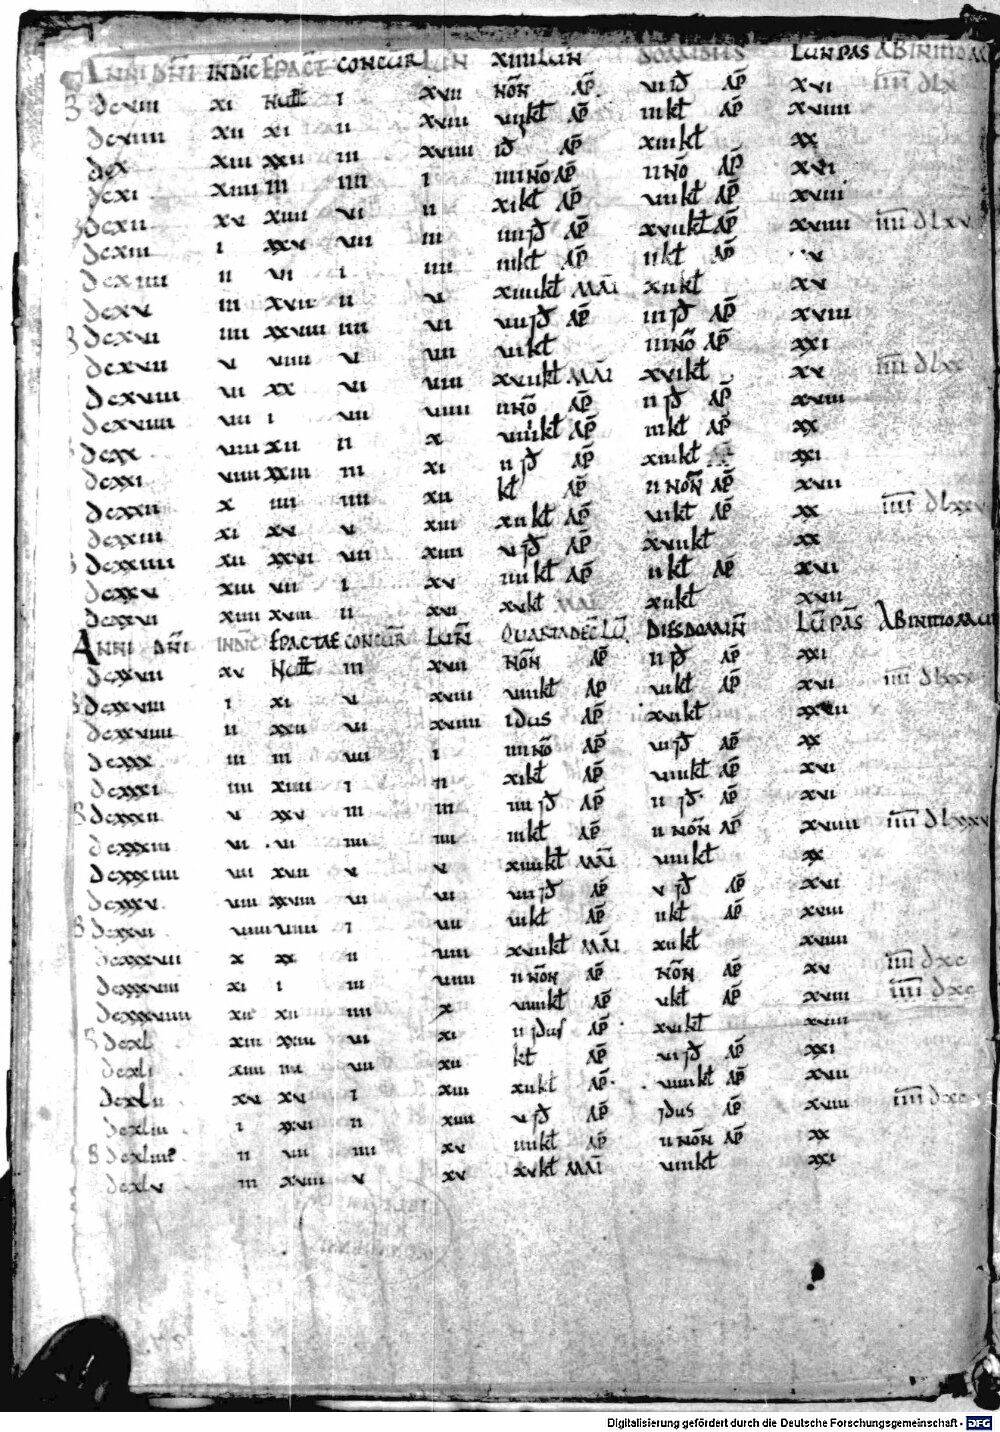 ANNI DNI INDIC EPACT CONCUR LUN XIIII LUN DOM DIES LUN PAS AB INITIO M
B dcviii xi Null i xvii NON AP vii id AP xvi iiii dlx
dcviiii xii xi ii xviii viii kl AP iii kl AP xviiii
dcx xiii xxii iii xviiii id AP xiii kl xx
dcxi xiiii iii iiii i iiii NO AP ii NO AP xvi
B dcxii xv xiiii vi ii xi kl AP viii kl AP xviii
dcxiii i xxv vii iii iiii id AP xvii kl AP xviiii iiii dlxv
dcxiiii ii vi i iiii iii kl AP ii kl AP xv
dcxv iii xvii ii v xiiii kl MAI xii kl xv
B dcxvi iiii xxviii iiii vi vii id AP iii id AP xviii
dcxvii v viiii v vii vi kl iii NO AP xxi
dcxviii vi xx vi viii xvii kl MAI xvi kl xv iiii dlxx
dcxviiii vii i vii viiii ii NO AP ii id AP xviii
dcxx viii xii ii x viiii kl AP iii kl AP xx
dcxxi viiii xxiii iii xi ii id AP xiii kl xxi
dcxxii x iiii iiii xii kl AP ii NON AP xvii
dcxxiii xi xv v xiii xii kl AP vi kl AP xx iiii dlxxv
B dcxxiiii xii xxvi vii xiiii v id AP xvii kl xx
dcxxv xiii vii i xv iiii kl AP ii kl AP xvi
dcxxvi xiiii xviii ii xvi xv kl MAI xii kl xvii
ANNI DNI INDIC EPACTAE CONCUR LUN QUARTA DEC LU DIES DOMIN LU PAS AB INITIO MU
dcxxvii xv Null iii xvii NON AP ii id AP xxi
B dcxxviii i xi v xviii viii kl AP vi kl AP xvi iiii dlxxx
dcxxviiii ii xxii vi xviiii idus AP xvi kl
dcxxx iii iii vii i iiii NO AP vi id AP xx
dcxxxi iiii xiiii i ii xi kl AP viiii kl AP xvi
B dcxxxii v xxv iii iii iiii id AP ii id AP xvi
dcxxxiii vi vi iiii iiii iii kl AP ii NON AP xviiii iiii dlxxxv
dcxxxiiii vii xvii v v xiiii kl MAI viii kl xx
dcxxxv viii xxviii vi vi vii id AP v id AP xvi
B dcxxvi viiii viiii i vii vi kl AP ii kl AP xviii
dcxxxvii x xx ii viii xvii kl MAI xii kl xviiii
dcxxxviii xi i iii viiii ii NON AP NON AP xv iiii dxc
dcxxxviiii xii xii iiii x viiii kl AP v kl AP xviii iiii dxc
B dcxl xiii xxiii vi xi ii idus AP xvi kl xviii
dcxli xiiii iiii vii xii kl AP vi id AP xxi
dcxlii xv xv i xiii xii kl AP viiii kl AP xvii
dcxliii i xxvi ii xiiii v id AP idus AP xviii iiii dxc
B dcxliiii ii vii iiii xv iiii kl AP ii NON AP xx
dcxlv iii xviii v xv xv kl MAI viii kl xxi
Digitalisierung gefördert durch die Deutsche Forschungsgemeinschaft - DFG